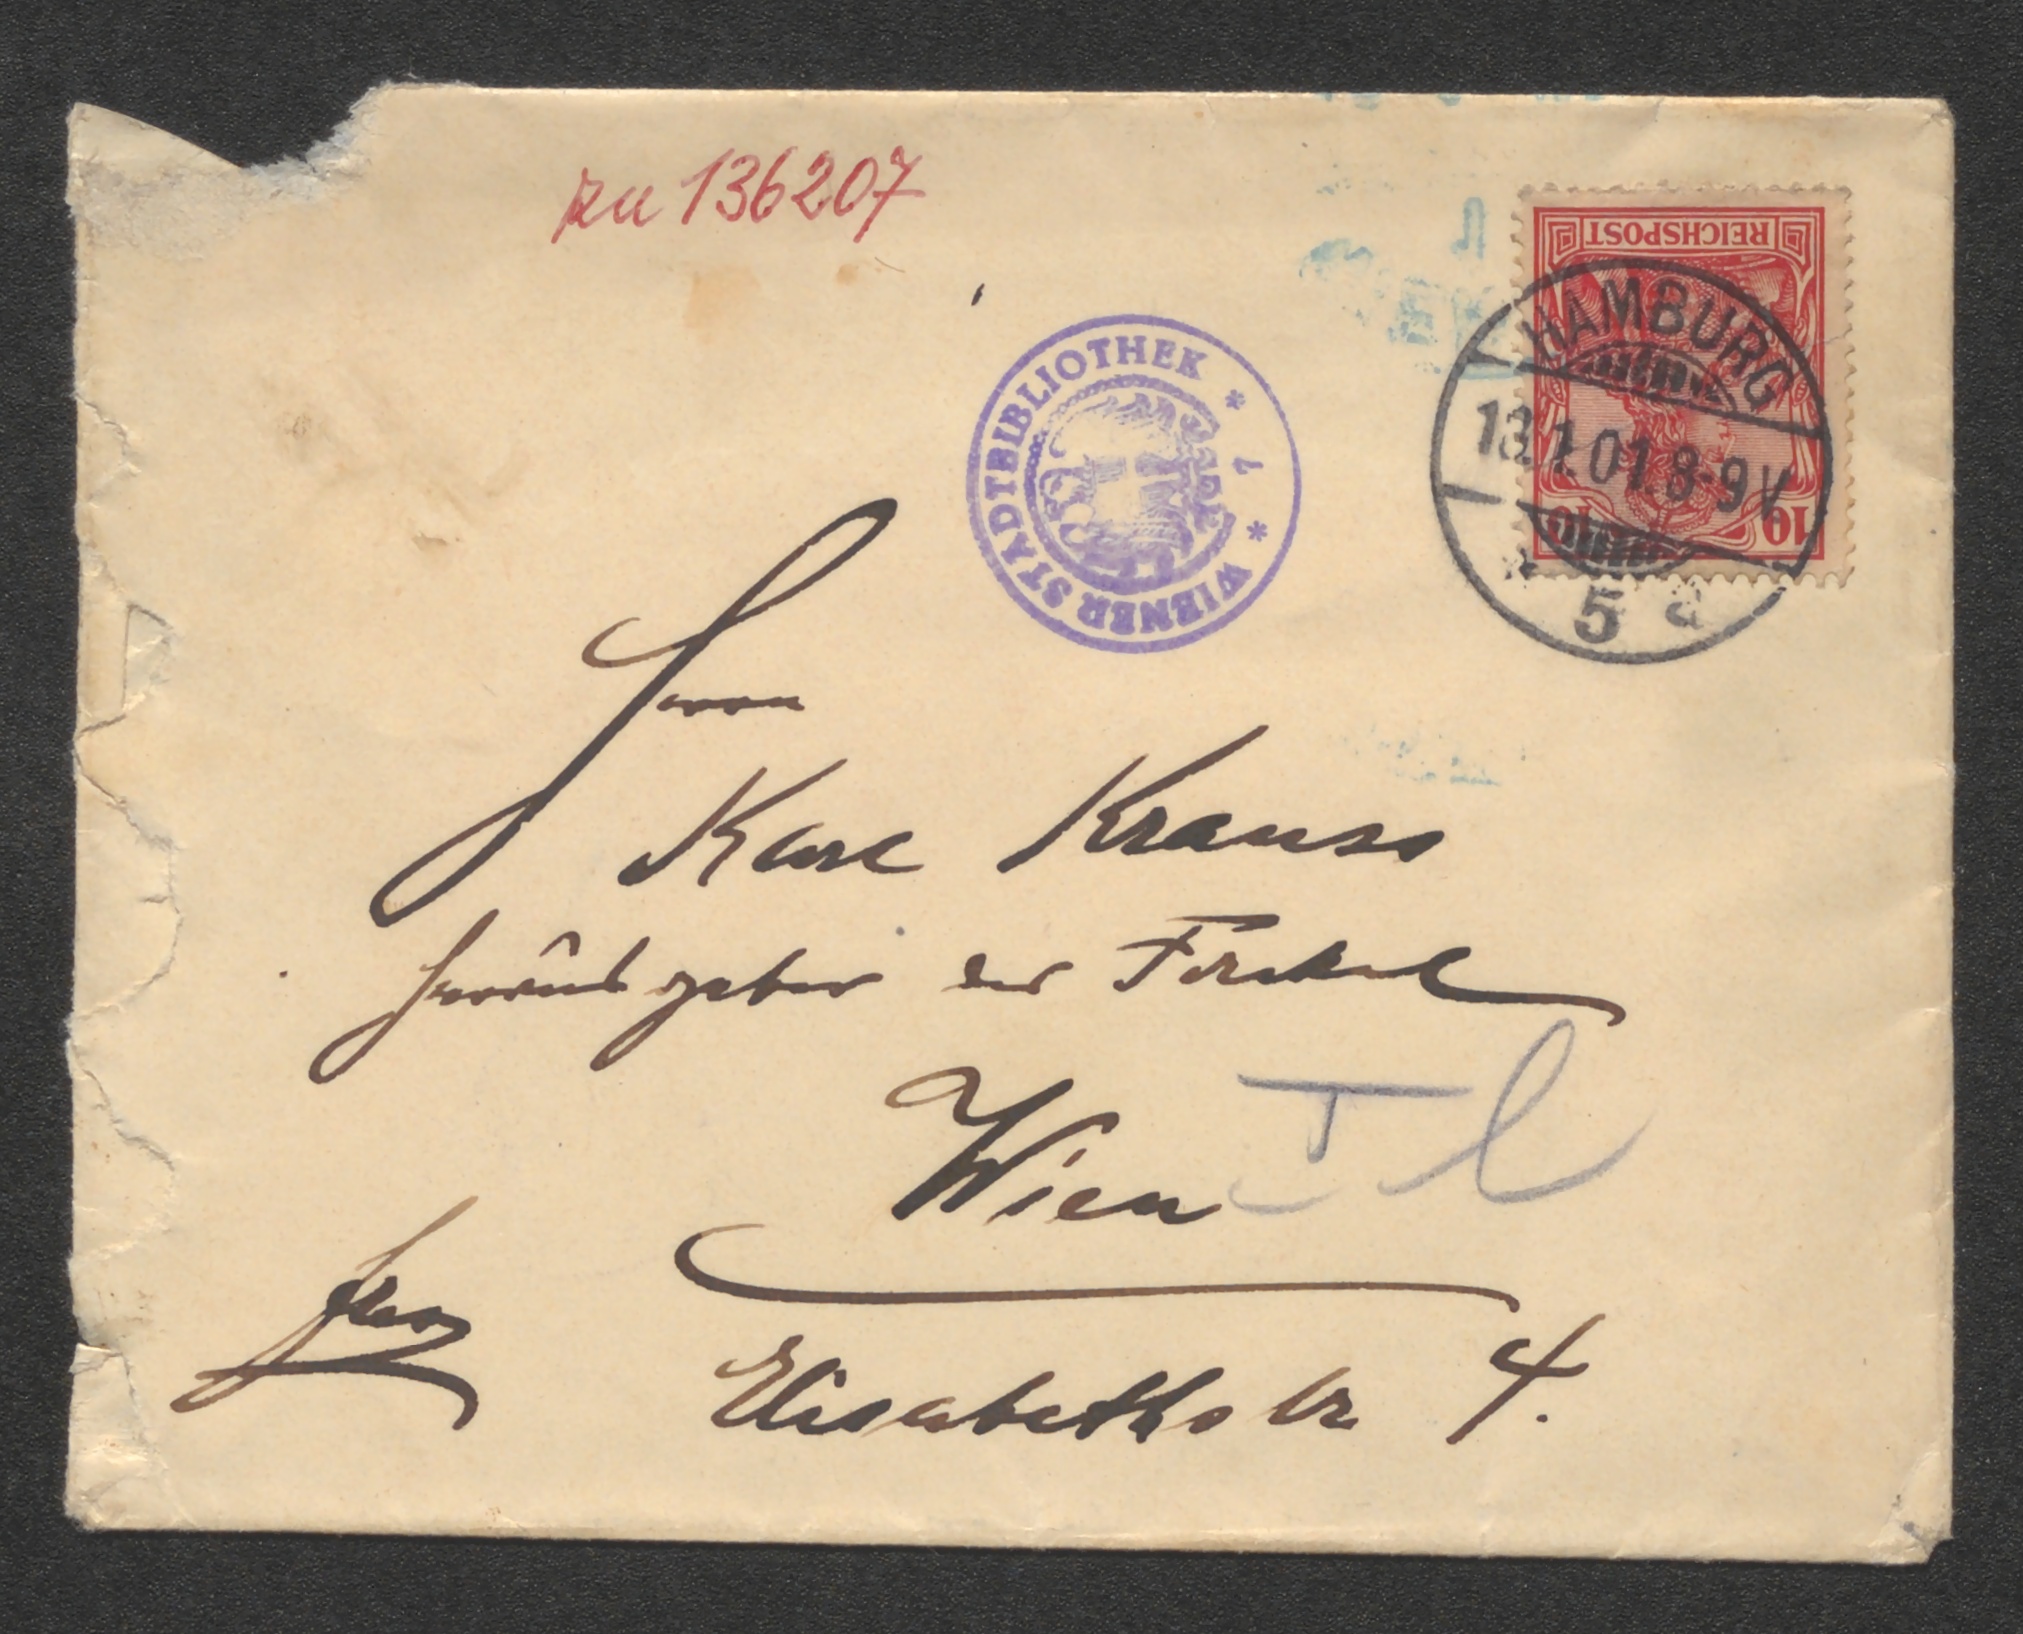 zu 136207
REICHSPOST
10 10
HAMBURG
13.1.01.8-9V
* 5 d
WIENER STADTBIBLIOTHEK * 1 *
Herrn
Karl Krauss
Herausgeber der Fackel
Wien
I
Elisabethstr 4.